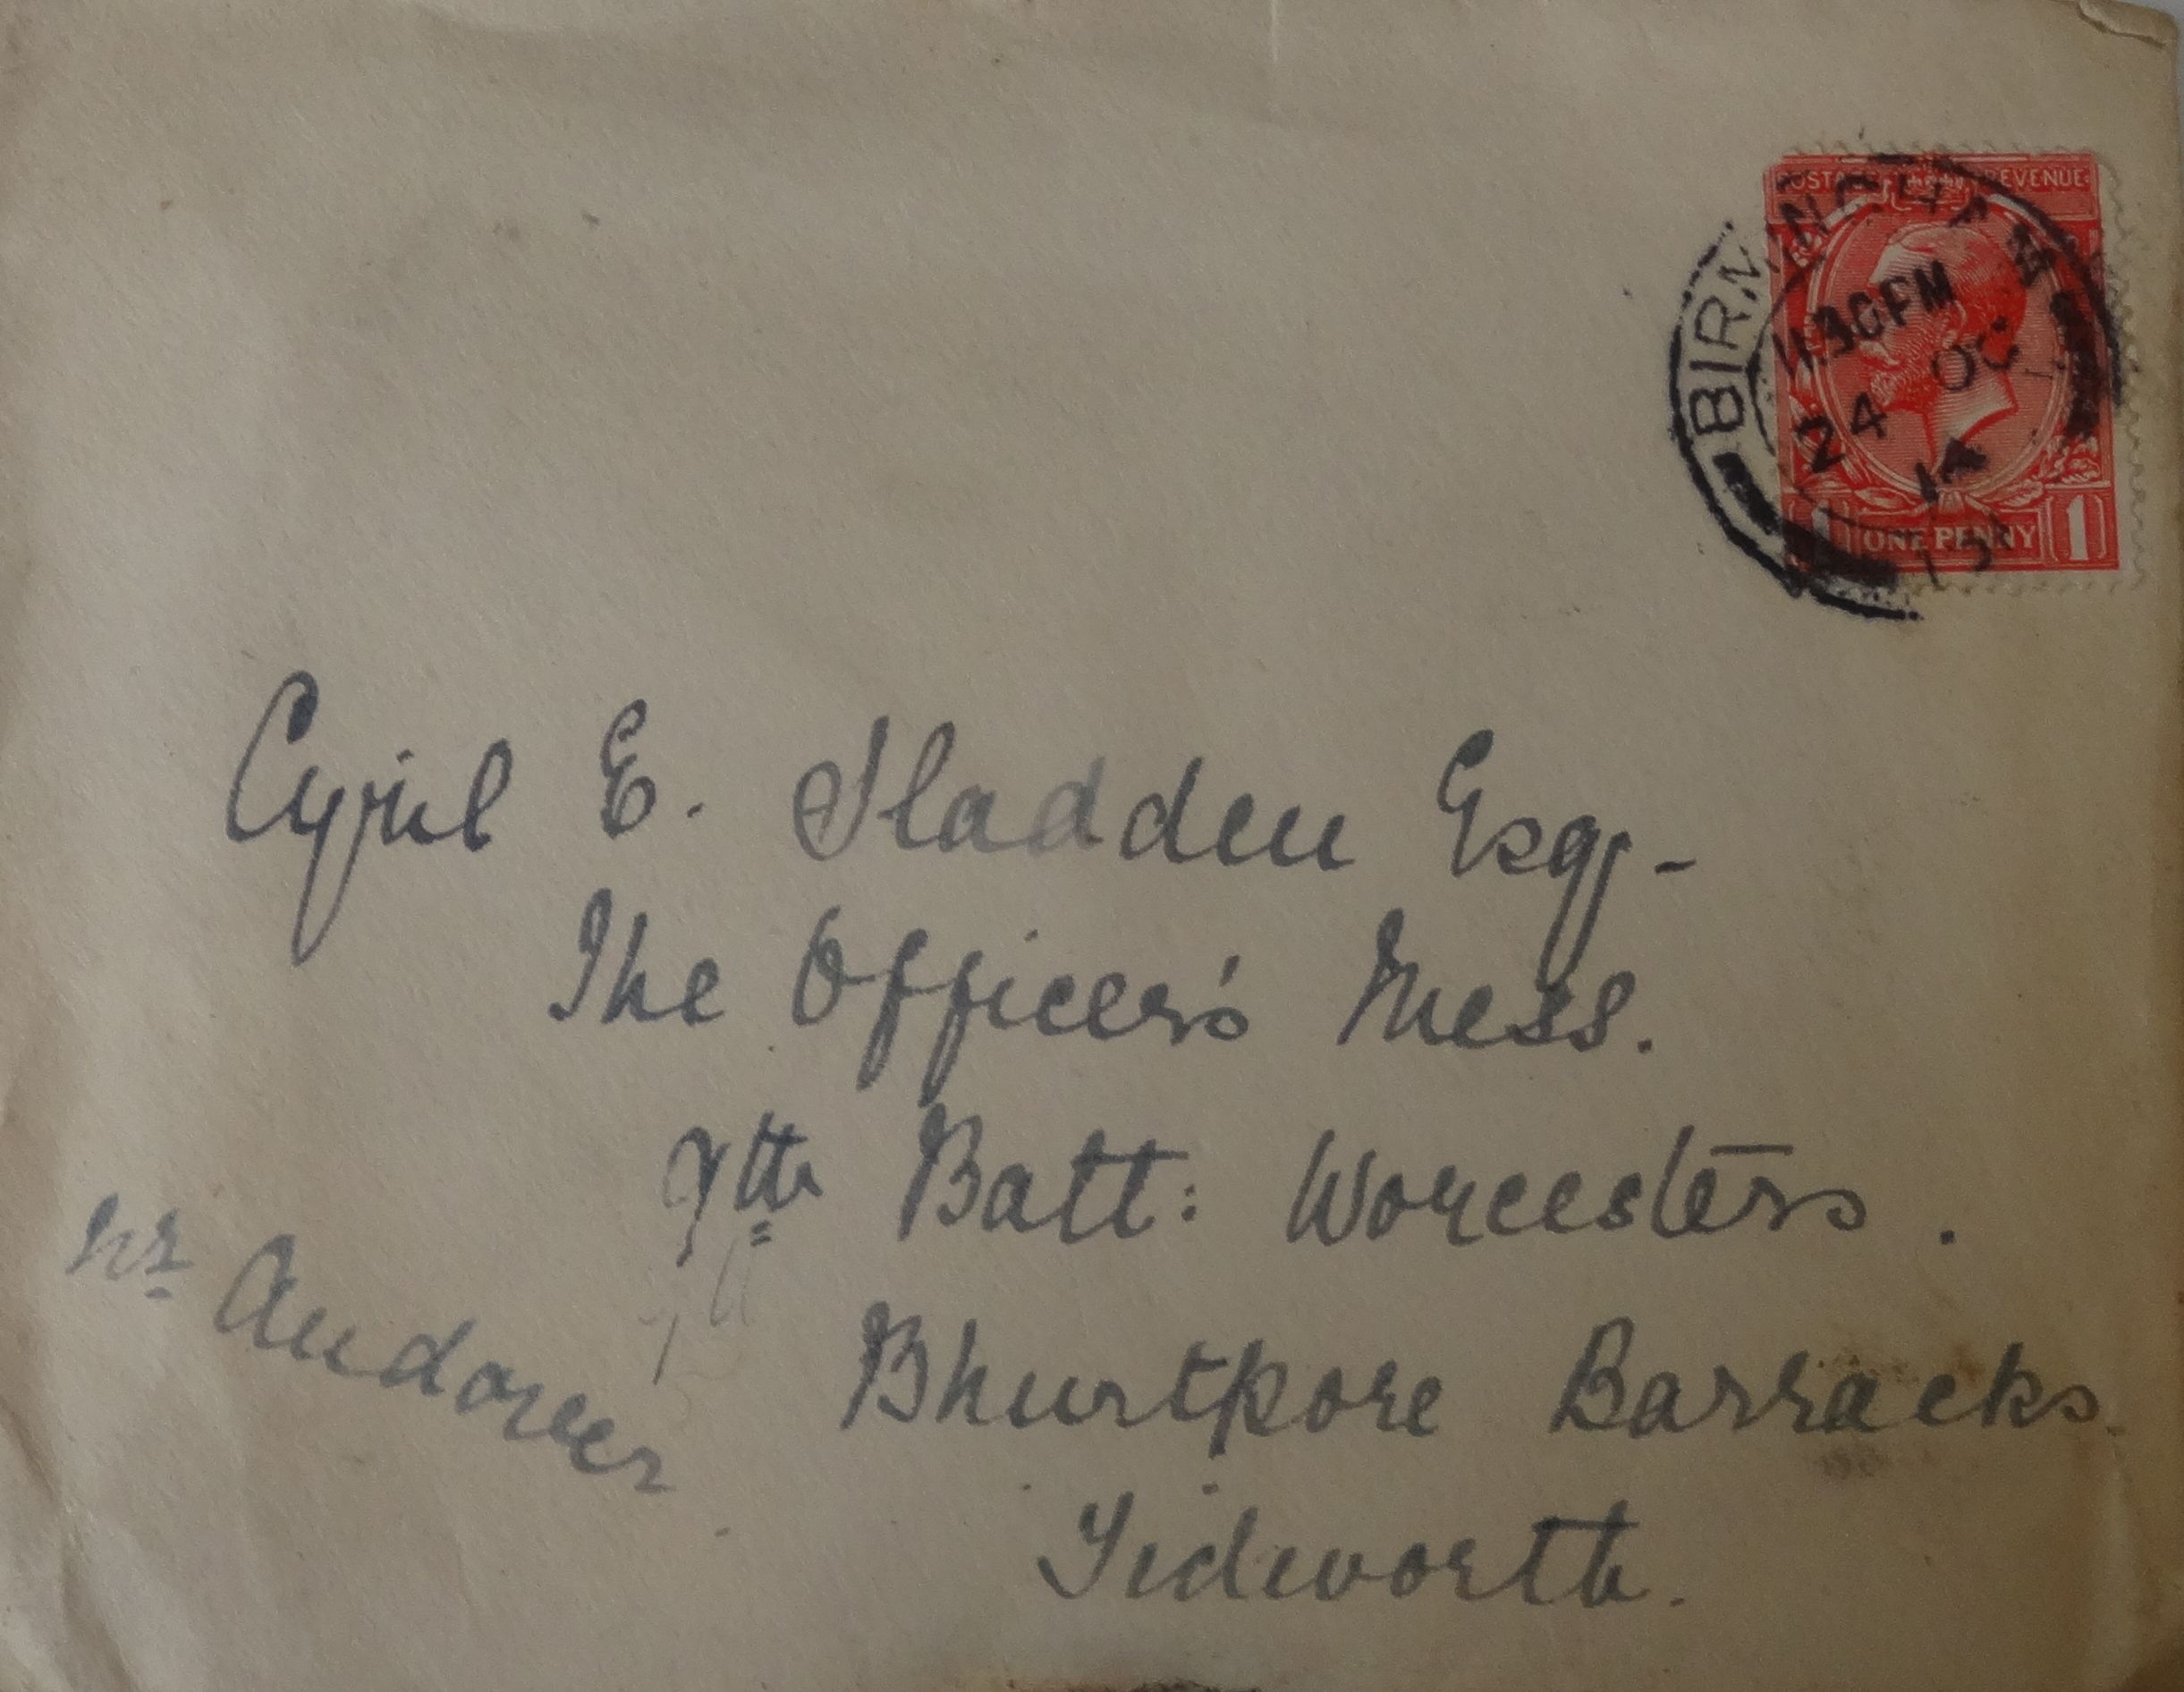 POSTAGE REVENUE
BIRMINGHAM
11.30PM
24 OC
14
ONE PENNY 1
Cyril E. Sladden Esq.-
The Officer's Mess.
9th Batt: Worcesters.
Bhurtpore Barracks.
Tidworth.
nr Andover